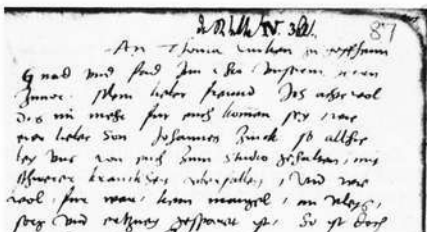 87
An Thoma Zincken zu Hoffheim
Gnad vnd frid jnn Christo vnserm Herrn
Mein lieber freund Ich acht wol
Das nu mehr fur euch komen sey, wie
ewer lieber Son Johannes Zinck so alhie
bey vns von euch zum studio gehalten, mit
schwerer kranckheit vberfallen, Vnd wie
wol, fur war, kein mangel, an vleys,
sorg vnd ertzney gesparet ist, So ist doch